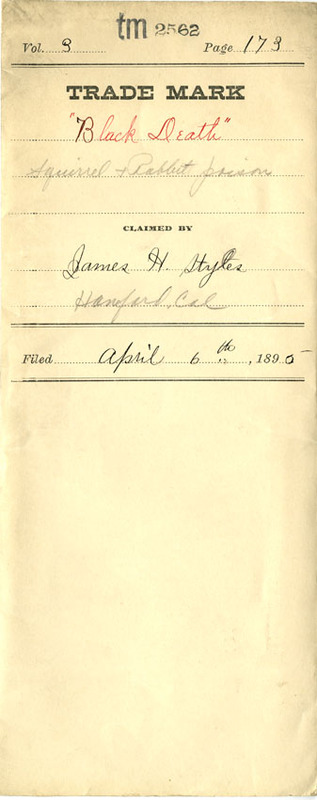 tm 2562
Vol. 3 Page 173
TRADE MARK
"Black Death"
Squirrel & Rabbit poison
CLAIMED BY
James H. Styles
Hanford, Cal
Filed April 6th, 1895